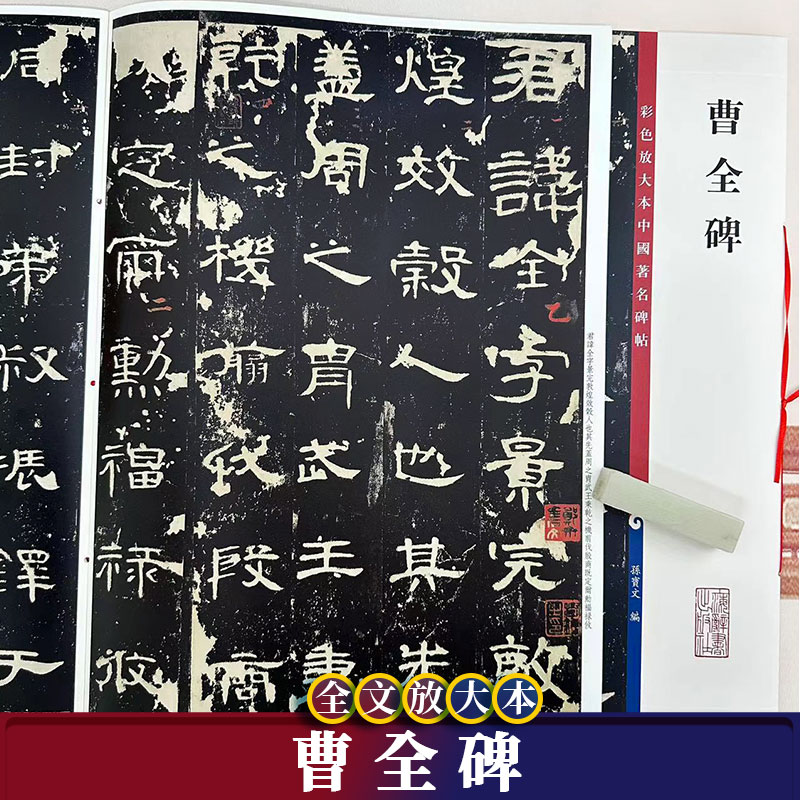 曹全碑
彩色放大本中國著名碑帖
孫寶文 編
上海辭書出版社
君諱全字景完敦
煌效穀人也其先
蓋周之冑武王秉
乾之機翦伐殷商
定爾勳福祿攸
同封弟叔振鐸于
君諱全字景完敦煌效穀人也其先蓋周之冑武王秉乾之機翦伐殷商既定爾勳福祿攸
全文放大本
曹全碑